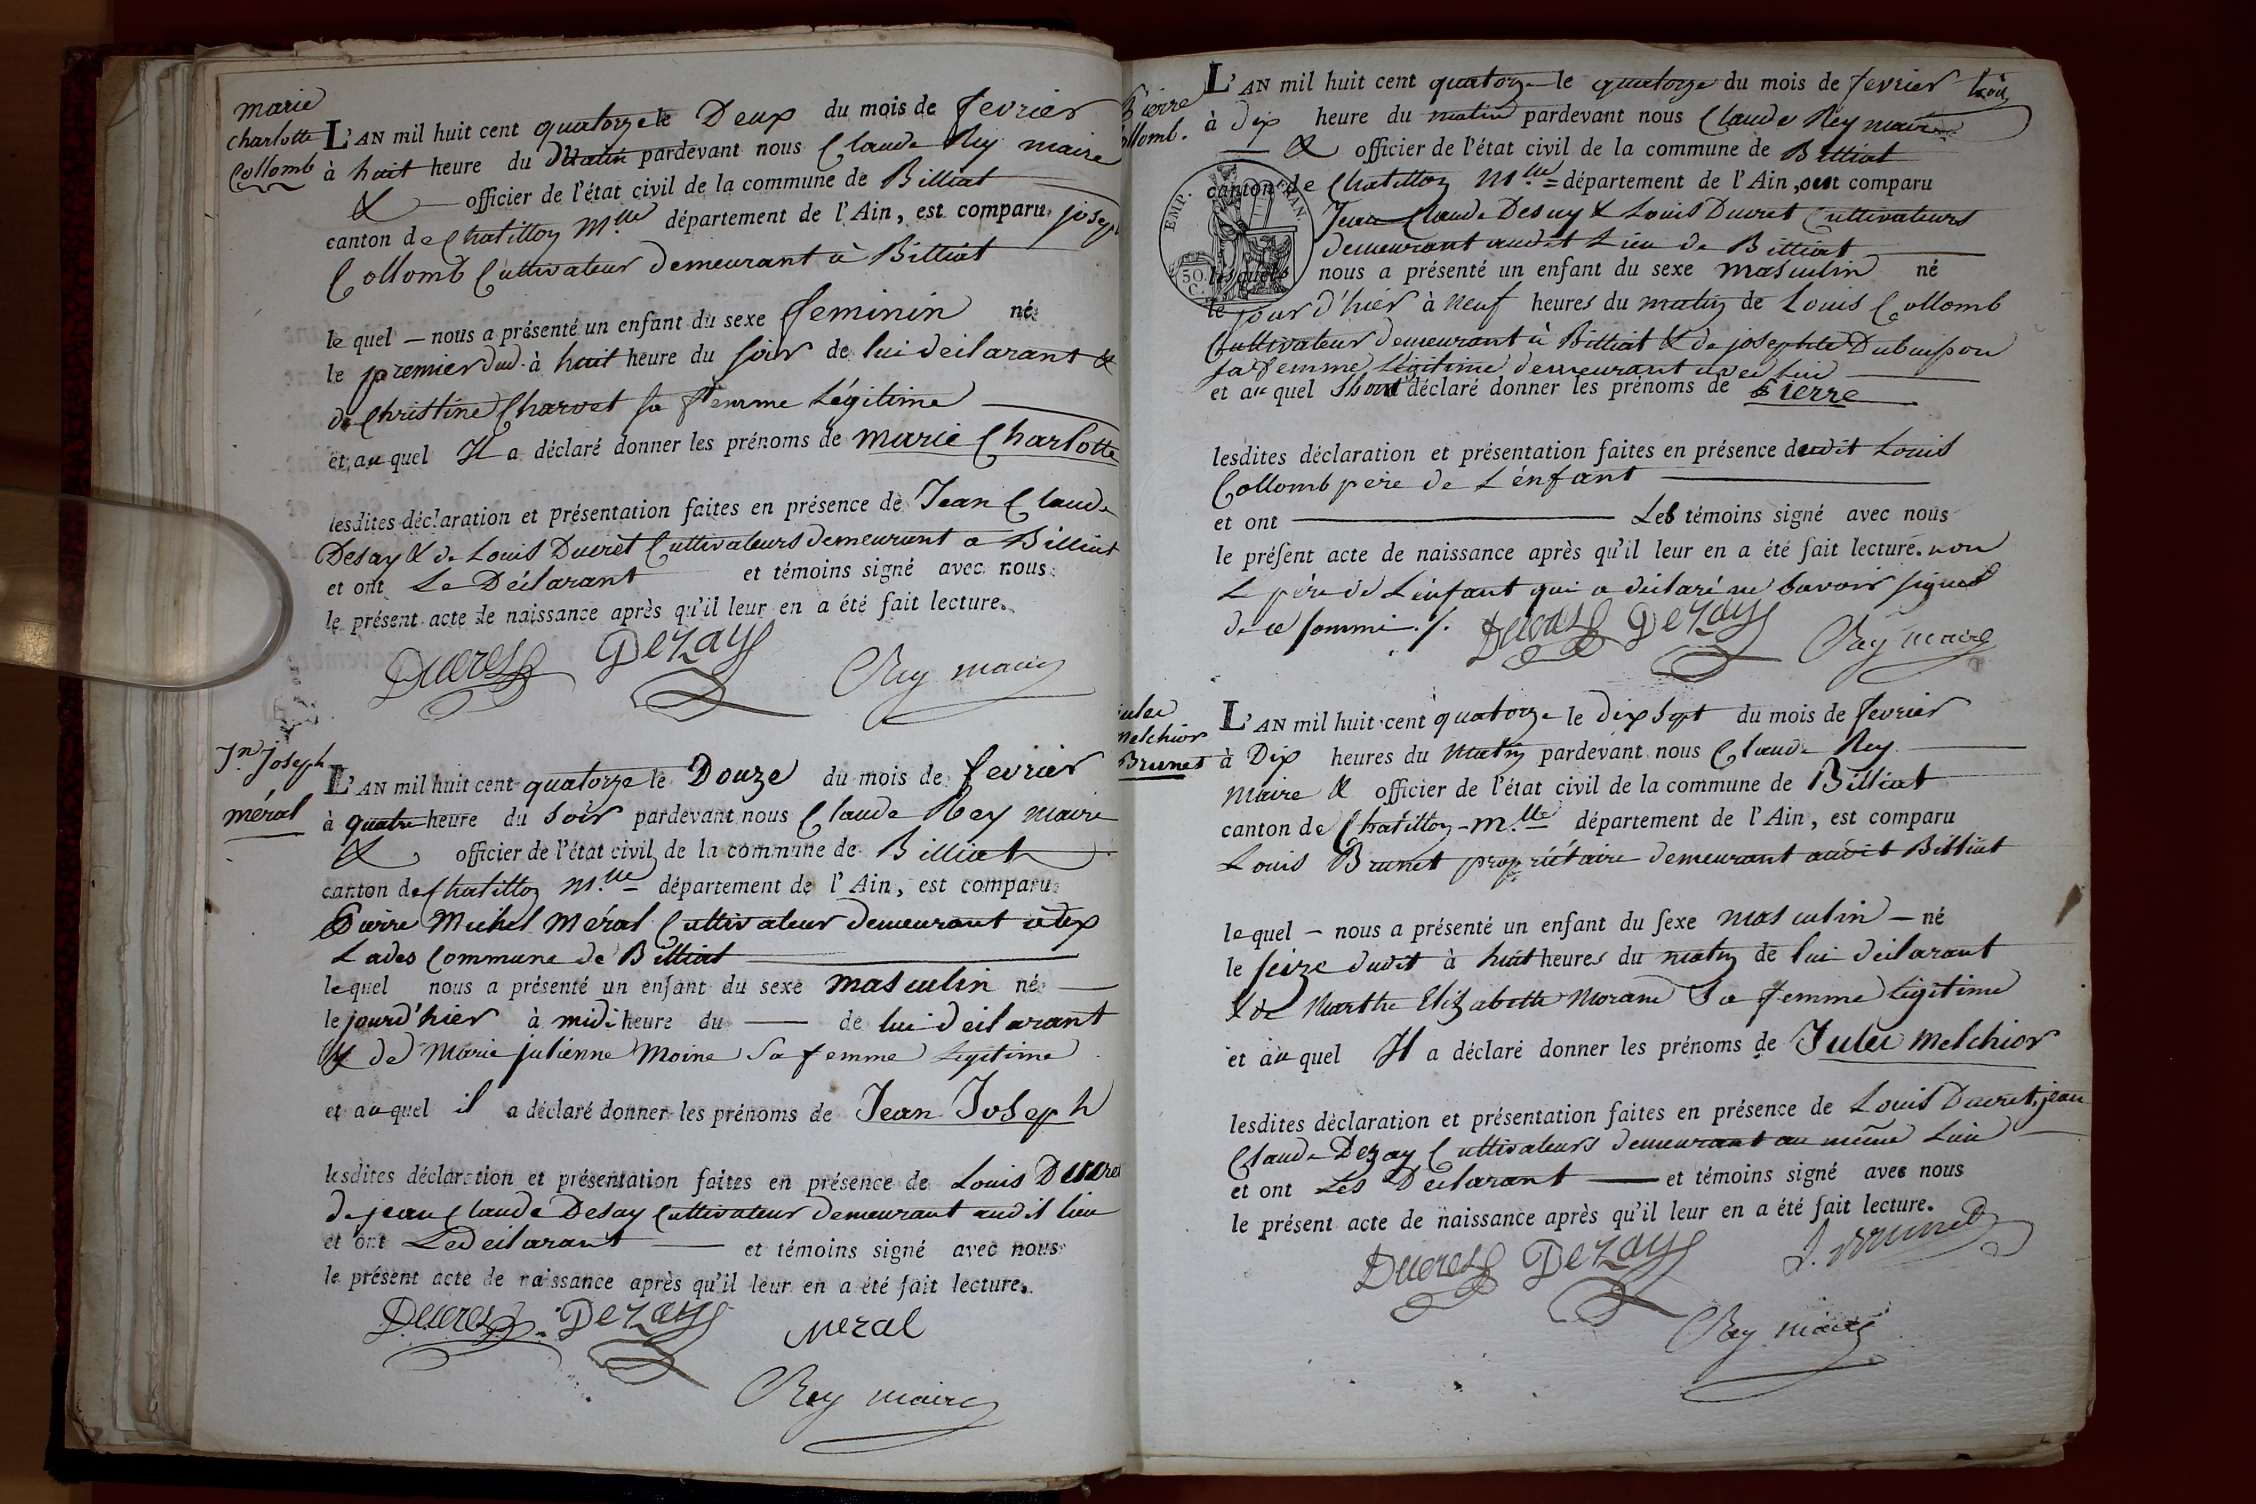 marie
charlotte
Collomb
L'AN mil huit cent quatorze le Deux du mois de fevrier
à huit heure du Matin pardevant nous Claude Rey maire
& officier de l'état civil de la commune de Billiat
canton de Chatillon M.lle département de l'Ain, est comparu joseph
Collomb Cultivateur demeurant à Billiat
le quel — nous a présenté un enfant du sexe feminin né
le premier dud. à huit heure du soir de lui déclarant &
de Christine Charvet sa femme Légitime
et au quel Il a déclaré donner les prénoms de marie Charlotte
lesdites déclaration et présentation faites en présence de Jean Claude
Desay & de Louis Ducret Cultivateurs demeurant a Billiat
et ont Le Déclarant et témoins signé avec nous
le présent acte de naissance après qu'il leur en a été fait lecture.
Ducret Dezay Rey maire
Jn. Joseph
méral
L'AN mil huit cent quatorze le Douze du mois de fevrier
à quatre heure du Soir pardevant nous Claude Rey maire
& officier de l'état civil de la commune de Billiat
canton de Chatillon M.lle département de l'Ain, est comparu
Pierre Michel Méral Cultivateur demeurant
Lades Commune de Billiat
lequel nous a présenté un enfant du sexe masculin né
le jourd'hier à midi heure du — de lui déclarant
& de Marie julienne Moine Sa femme Legitime
et au quel il a déclaré donner les prénoms de Jean Joseph
lesdites déclaration et présentation faites en présence de Louis Ducret
de jean Claude Desay Cultivateur demeurant audit lieu
et ont Le declarant et témoins signé avec nous
le présent acte de naissance après qu'il leur en a été fait lecture.
Ducret Dezay Meral
Rey maire
Pierre
Collomb.
L'AN mil huit cent quatorze le quatorze du mois de fevrier
à dix heure du matin pardevant nous Claude Rey maire
& officier de l'état civil de la commune de Billiat
canton de Chatillon M.lle département de l'Ain, ont comparu
EMP. FRAN.
50 C.
Jean Claude Desay & Louis Ducret Cultivateurs
demeurant audit Lieu de Billiat
lesquels nous a présenté un enfant du sexe masculin né
le jour d'hier à neuf heures du matin de Louis Collomb
Cultivateur demeurant à Billiat & de josephte Dubuisson
sa femme Légitime demeurant avec lui
et au quel Ils ont déclaré donner les prénoms de Pierre
lesdites déclaration et présentation faites en présence dudit Louis
Collomb père de L'énfant
et ont Les témoins signé avec nous
le présent acte de naissance après qu'il leur en a été fait lecture. non
Le père de L'enfant qui a déclaré ne savoir signer
de ce sommé ./. Ducret Dezay Rey maire
jules
melchior
Brunet
L'AN mil huit cent quatorze le dix sept du mois de fevrier
à Dix heures du Matin pardevant nous Claude Rey
Maire & officier de l'état civil de la commune de Billiat
canton de Chatillon-M.lle département de l'Ain, est comparu
Louis Brunet propriétaire demeurant audit Billiat
le quel — nous a présenté un enfant du sexe masculin — né
le seize dudit à huit heures du matin de lui déclarant
& de Marthe Elizabette Morand Sa femme légitime
et au quel Il a déclaré donner les prénoms de Jules Melchior
lesdites déclaration et présentation faites en présence de Louis Ducret, jean
Claude Dezay Cultivateurs demeurant au même Lieu
et ont Les Déclarant et témoins signé avec nous
le présent acte de naissance après qu'il leur en a été fait lecture.
Ducret Dezay L. Brunet
Rey maire